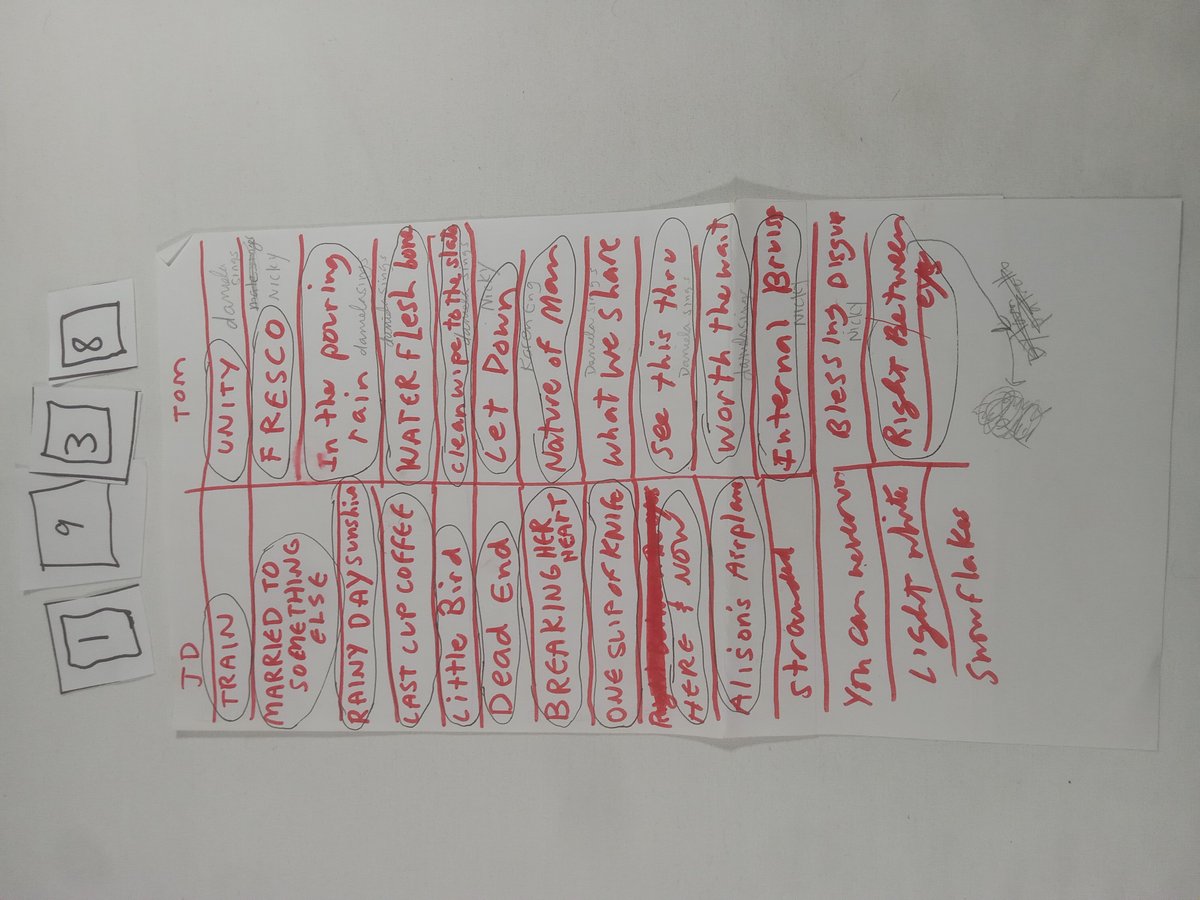 1
9
3
8
JD
TOM
TRAIN
UNITY
daniela
sings
MARRIED TO
SOMETHING
ELSE
FRESCO
NICKY
RAINY DAY sunshine
In the pouring
rain
danielasings
LAST CUP COFFEE
WATER FLesh bone
danielasings
Little Bird
clean wipe to the slate
daniela sings
Dead End
Let Down
Nicky
BREAKING HER
HEART
Nature of Man
Karen Eng
ONE SLIP OF KNIFE
What we share
Daniela sings
HERE & NOW
See this thru
Daniela sings
Alison's Airplane
Worth the wait
danielasings
Stranded
Internal Bruise
NICKY
You can neverwin
Blessing Disgu
Nicky
Light white
Snowflakes
Right Between
eyes